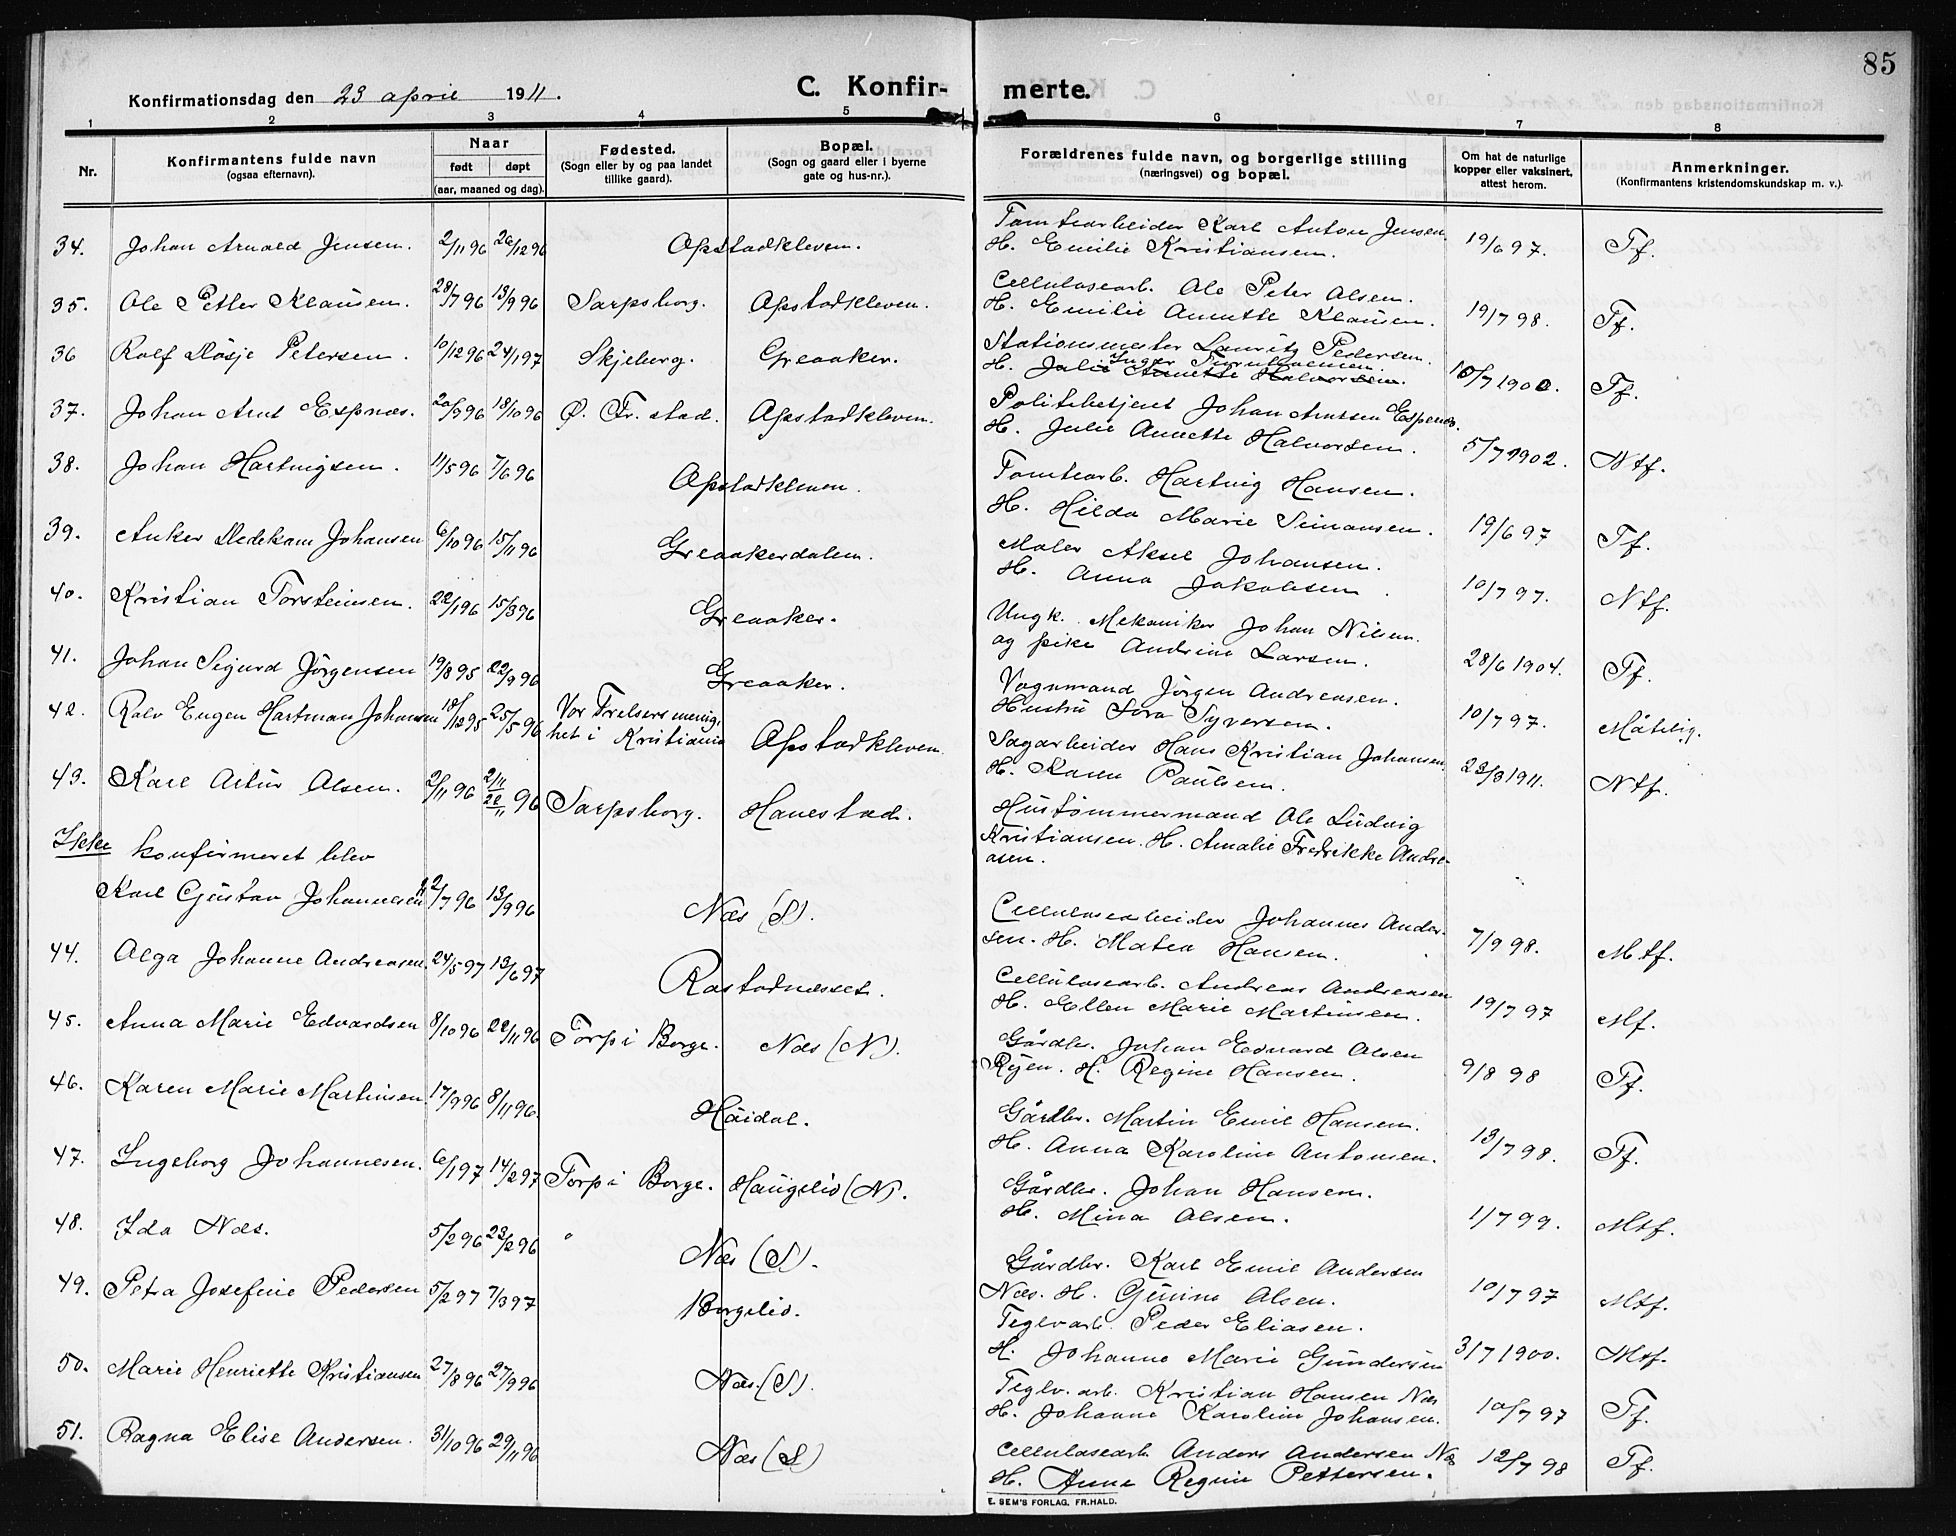 85
Konfirmationsdag den 23 april 1911.
C. Konfir- merte.
1 2 3 4 5 6 7 8
Nr.
Konfirmantens fulde navn
(ogsaa efternavn).
Naar
født døpt
(aar, maaned og dag).
Fødested.
(Sogn eller by og paa landet
tillike gaard).
Bopæl.
(Sogn og gaard eller i byerne
gate og hus-nr.).
Forældrenes fulde navn, og borgerlige stilling
(næringsvei) og bopæl.
Om hat de naturlige
kopper eller vaksinert,
attest herom.
Anmerkninger.
(Konfirmantens kristendomskundskap m. v.).
34. Johan Arnold Jensen. 2/11 96 26/12 96 Opstadkleven.
Tomtearbeider Karl Anton Jensen
H. Emilie Kristiansen. 19/6 97. Tf.
35. Ole Petter Klausen. 28/7 96 13/9 96 Sarpsborg. Opstadkleven.
Cellulosearb. Ole Peter Olsen.
H. Emilie Annette Klausen. 19/7 98. Tf.
36 Rolf Petersen. 10/12 96 24/1 97 Skjeberg. Greaaker.
Stationsmester Lauritz Pedersen.
H. Julie Annette Halvorsen. Inger 10/7 1900. Tf.
37. Johan Arnt Espnæs. 20/9 96 18/10 96 Ø. Fr. stad. Opstadkleven.
Politibetjent Johan Arntsen Espenæs.
H. Julie Annette Halvorsen. 5/7 1902. Ntf.
38. Johan Hartvigsen. 11/5 96 7/6 96 Opstadkleven.
Tomtearb. Hartvig Hansen.
H. Hilda Marie Simonsen. 19/6 97 Tf.
39. Anker Dedekam Johansen 6/10 96 15/11 96 Greaakerdalen.
Maler Aksel Johansen.
H. Anna Jakobsen. 10/7 97. Ntf.
40. Kristian Torsteinsen. 22/1 96 15/3 96 Greaaker.
Ungk. Mekaniker Johan Nilsen.
og pike Andrine Larsen. 28/6 1904. Tf.
41. Johan Sigurd Jörgensen 19/8 95 22/9 96 Greaaker.
Vognmand Jörgen Andreasen.
Hustru Lova Syversen. 10/7 97. Måtelig.
42. Rolv Eugen Hartman Johansen 18/12 95 25/5 96 Vor Frelsers menig-
het i Kristiania Opstadkleven.
Sagarbeider Hans Kristian Johansen
H. Karen Paulsen. 23/3 1911. Ntf.
43. Karl Artur Olsen. 2/11 96 2/11 22/11 96 Sarpsborg. Hanestad.
Hustømmermand Ole Ludvig
Kristiansen. H. Amalie Fredrikke Andre-
asen.
Ikke konfirmeret blev
Karl Gustav Johannesen 22/7 96 13/9 96 Næs (S).
Cellulosearbeider Johannes Ander-
sen. H. Matea Hansen. 7/9 98. Mtf.
44. Olga Johanne Andreasen. 24/5 97 13/6 97 Rostadnesset.
Cellulosearb. Andreas Andreasen
H. Ellen Marie Martinsen. 19/7 97 Mf.
45. Anna Marie Edvardsen 8/10 96 22/11 96 Torp i Borge. Næs (N).
Gårdbr. Johan Edvard Olsen
Ryen. H. Regine Hansen. 9/8 98 Tf.
46. Karen Marie Martinsen. 17/9 96 8/11 96. Höidal.
Gårdbr. Martin Emil Hansen.
H. Anna Karoline Antonsen. 13/7 98. Tf.
47. Ingeborg Johannesen. 6/1 97 14/2 97 Torp i Borge. Haugslid (N).
Gårdbr. Johan Hansen.
H. Mina Olsen. 1/7 99. Mtf.
48. Ida Næs. 5/2 96 23/2 96 Næs (S).
Gårdbr. Karl Emil Andersen
Næs. H. Gunine Olsen. 10/7 97 Mtf.
49. Petra Josefine Pedersen 5/2 97 7/3 97 Borgelid.
Teglvarb. Peder Eliasen.
H. Johanne Marie Gundersen 31/7 1900. Mtf.
50. Marie Henriette Kristiansen 27/8 96 27/9 96 Næs. (S).
Teglv. arb. Kristian Hansen Næs
H. Johanne Karoline Johansen. 10/7 97 Tf.
51. Ragna Elise Andersen. 31/10 96 29/11 96 Næs (S)
Cellulosearb. Anders Andersen Næs
H. Anna Regine Pettersen. 12/7 98 Tf.
E. SEM'S FORLAG, FR.HALD.